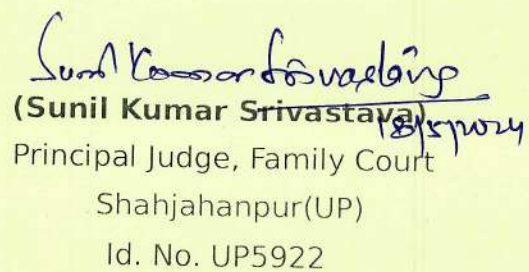 Sunil Kumar Srivastava
(Sunil Kumar Srivastava)
18/5/2024
Principal Judge, Family Court
Shahjahanpur(UP)
Id. No. UP5922